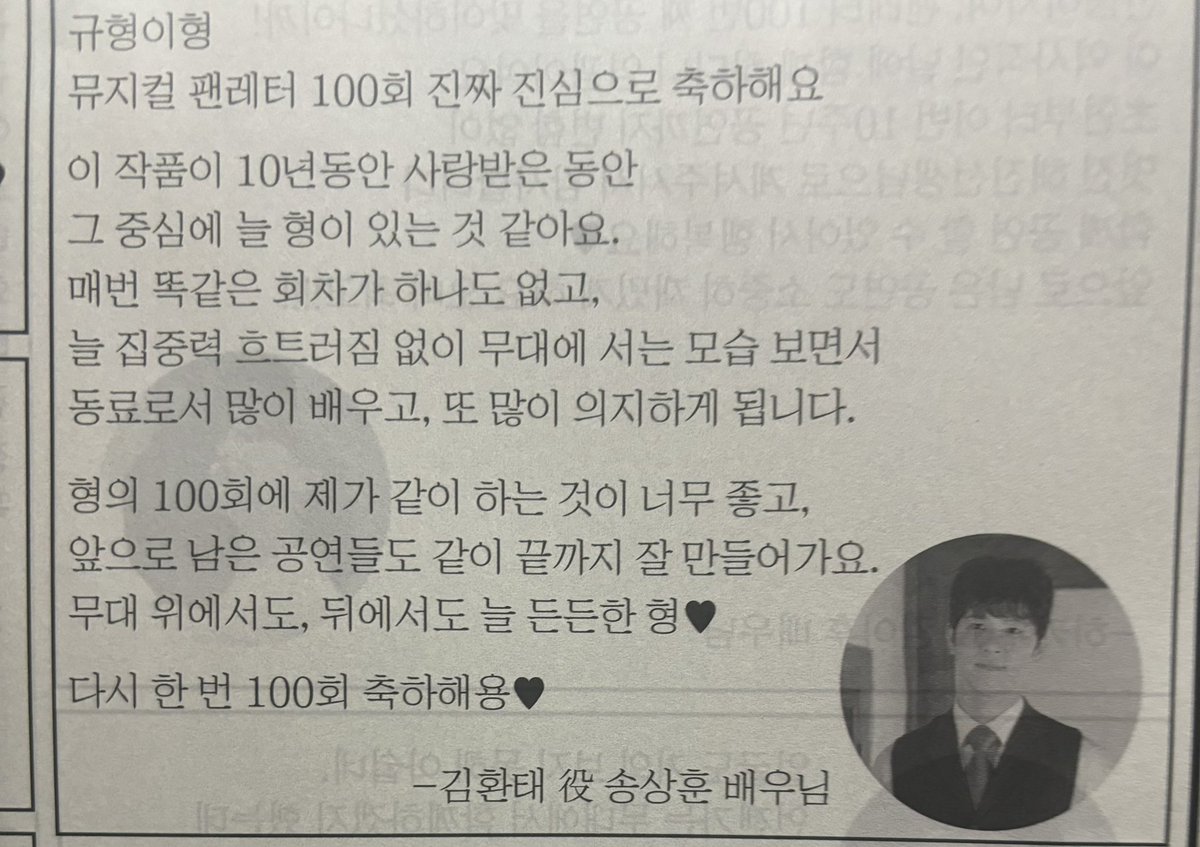 규형이형
뮤지컬 팬레터 100회 진짜 진심으로 축하해요
이 작품이 10년동안 사랑받은 동안
그 중심에 늘 형이 있는 것 같아요.
매번 똑같은 회차가 하나도 없고,
늘 집중력 흐트러짐 없이 무대에 서는 모습 보면서
동료로서 많이 배우고, 또 많이 의지하게 됩니다.
형의 100회에 제가 같이 하는 것이 너무 좋고,
앞으로 남은 공연들도 같이 끝까지 잘 만들어가요.
무대 위에서도, 뒤에서도 늘 든든한 형♥
다시 한 번 100회 축하해용♥
-김환태 役 송상훈 배우님